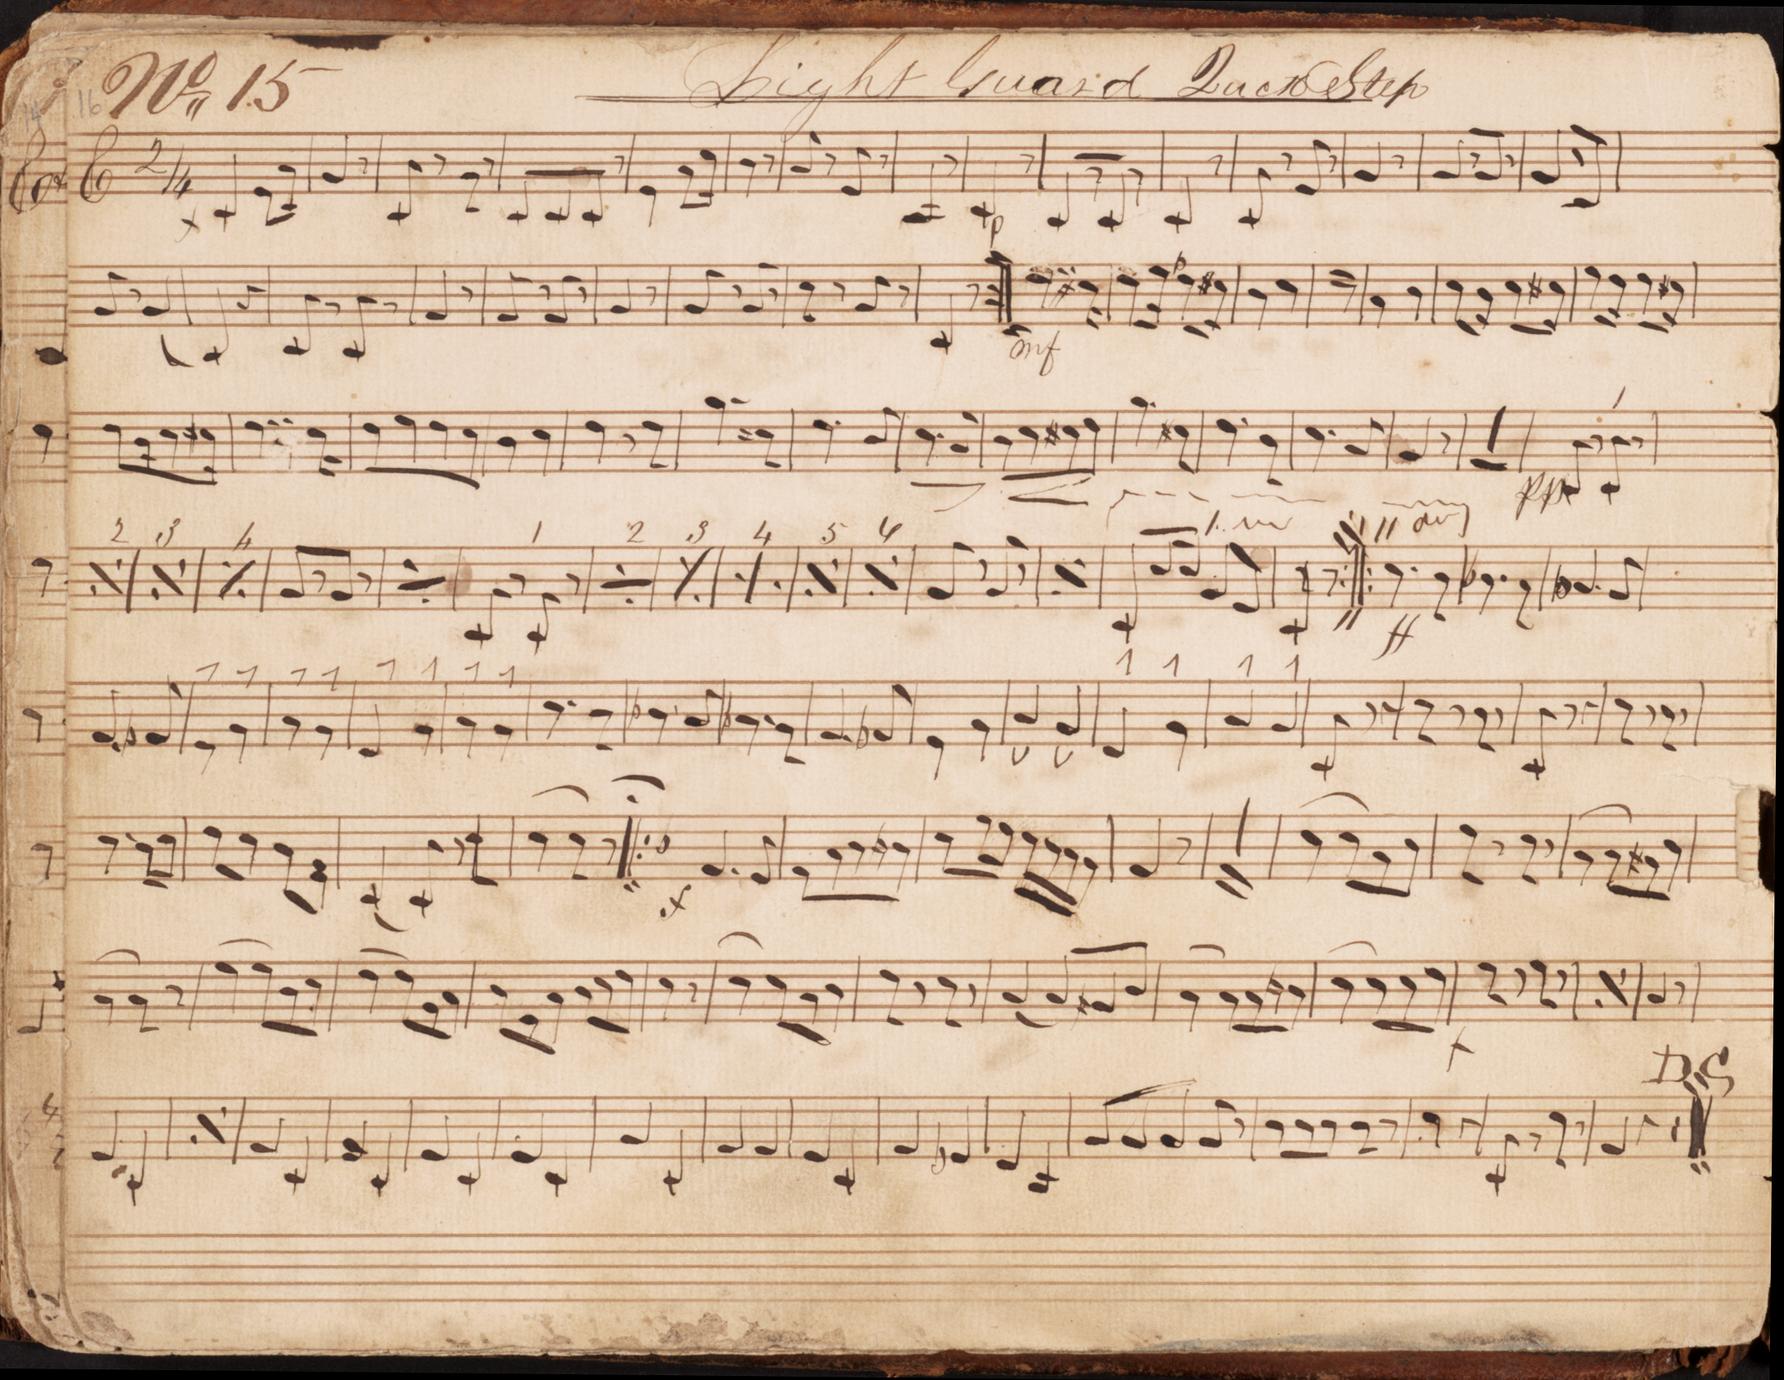 14 16 No 15 Light Guard Quick Step
2/4
p
mf
pp 1
2 3 4 1 2 3 4 5 6
ff
1 1 1 1 1 1 1 1 1 1 1 1
D.S